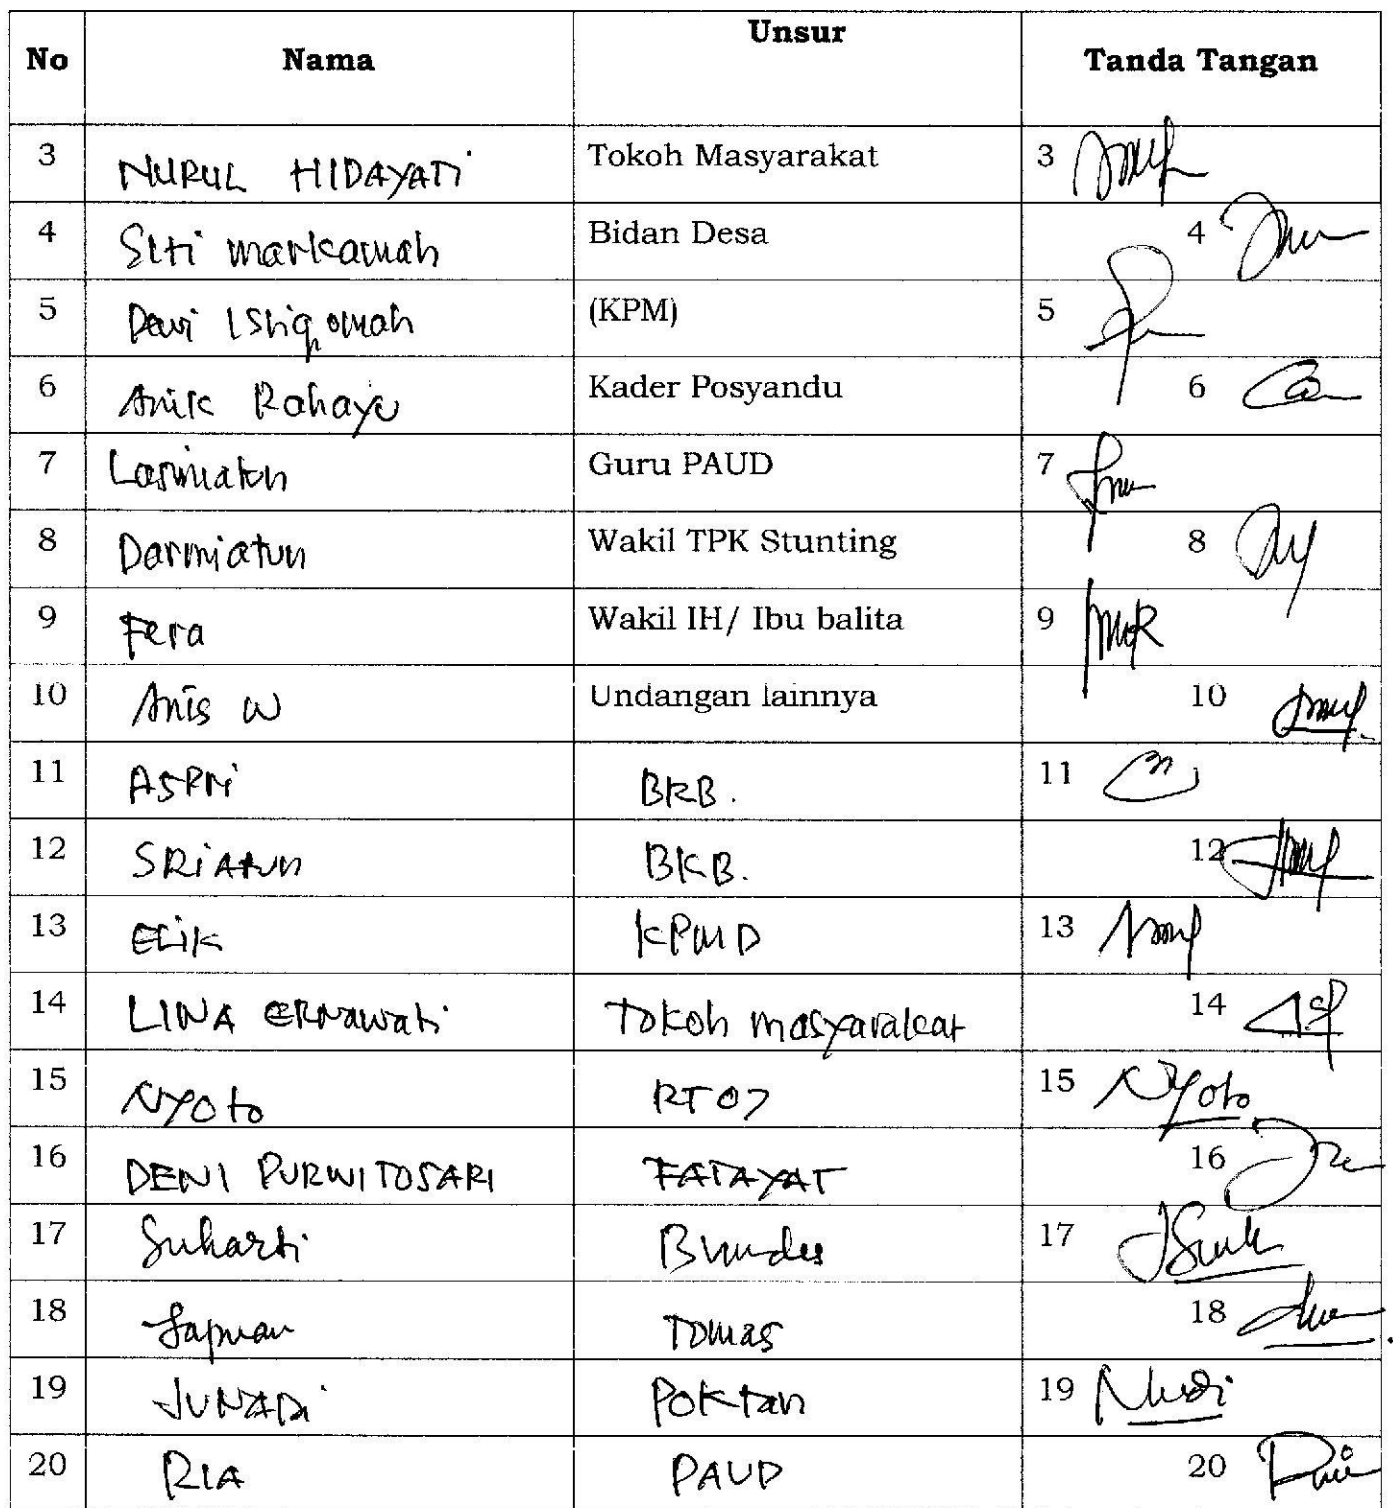 No Nama Unsur Tanda Tangan
3 NURUL HIDAYATI Tokoh Masyarakat 3
4 Siti markamah Bidan Desa 4
5 Dewi Istiqomah (KPM) 5
6 Anik Rahayu Kader Posyandu 6
7 Larmiatun Guru PAUD 7
8 Darmiatun Wakil TPK Stunting 8
9 Fera Wakil IH/ Ibu balita 9
10 Anis W Undangan lainnya 10
11 ASRNi BKB. 11
12 SRiAtun BKB. 12
13 ELiK KPMD 13
14 LINA ERNawati Tokoh masyarakat 14
15 Nyoto RT 07 15 Nyoto
16 DENI PURWITOSARI FATAYAT 16
17 Suharti Bumdes 17
18 Tomas 18
19 JUNADi Poktan 19
20 RIA PAUD 20